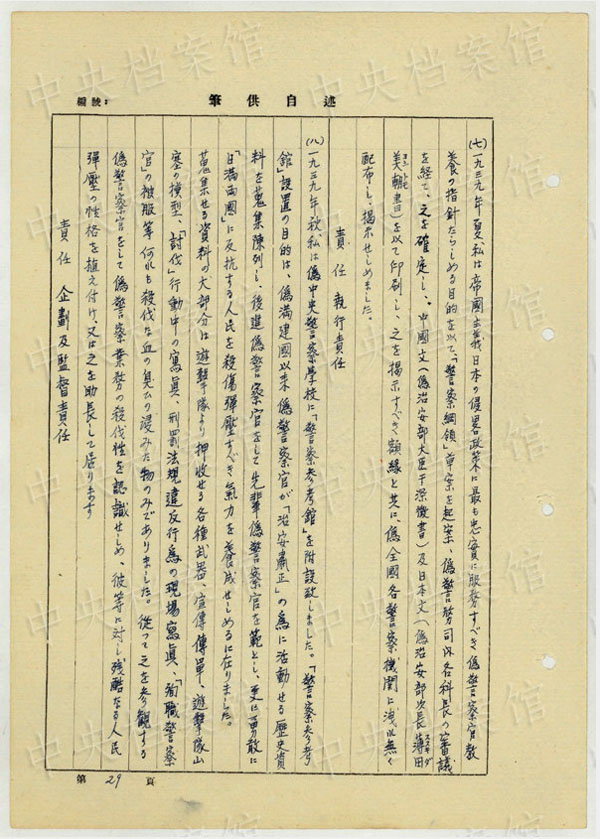 編號:
筆供自述
(七)一九三九年夏、私は帝國主義日本の侵畧政策に最も忠實に服務すべき偽警察官教
養の指針たらしめる目的を以て、「警察綱領」草案を起案、偽警務司内各科長の審議
を経て、之を確定し、中國文(偽治安部大臣于深徵書)及日本文(偽治安部次長薄田
ススキダ
美朝書)を以て印刷し、之を掲示すべき額縁と共に、偽全國各警察機関に洩れ無く
配布し、掲示せしめました。
責任 執行責任
(八)一九三九年秋、私は偽中央警察學校に「警察参考館」を附設致しました。「警察参考
館」設置の目的は、偽満建國以来偽警察官が「治安粛正」の為に活動せる歴史資
料を蒐集陳列し、後進偽警察官をして先輩偽警察官を範とし、更に勇敢に
「日満両國」に反抗する人民を殺傷弾壓すべき氣力を養成せしめるに在りました。
蒐集せる資料の大部分は遊撃隊より押收せる各種武器、宣傳傳單、遊撃隊山
塞の模型、「討伐」行動中の寫眞、刑罰法規違反行為の現場寫眞、「殉職警察
官」の被服等何れも殺伐な血の臭ひの浸みた物のみでありました。従つて之を参観する
偽警察官をして偽警察業務の殺伐性を認識せしめ、彼等に対し残酷なる人民
弾壓の性格を植え付け、又は之を助長して居ります
責任 企劃及監督責任
第29頁
中央档案馆